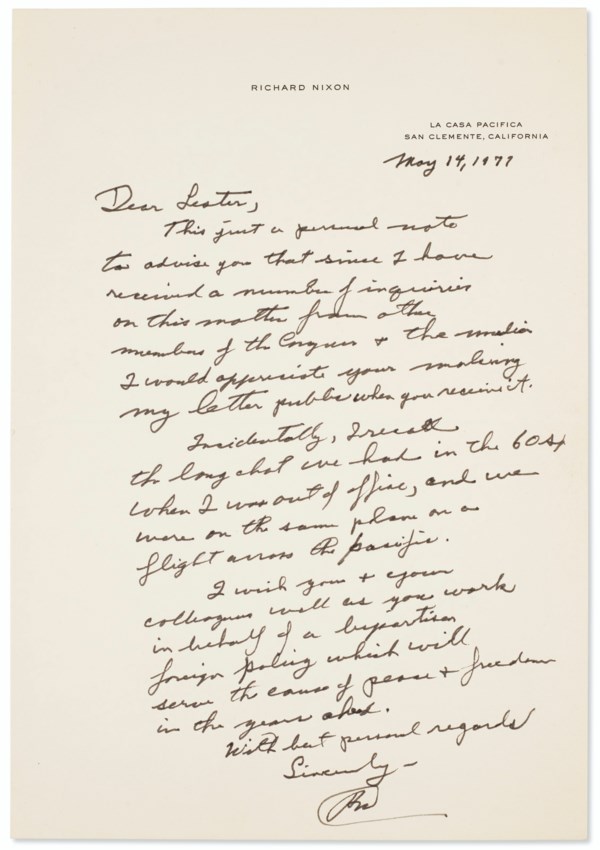 RICHARD NIXON
LA CASA PACIFICA
SAN CLEMENTE, CALIFORNIA
May 14, 1977
Dear Lester,
This just a personal note
to advise you that since I have
received a number of inquiries
on this matter from other
members of the Congress + the media
I would appreciate your making
my letter public when you receive it.
Incidentally, I recall
the long chat we had in the 60s
when I was out of office, and we
were on the same plane on a
flight across the pacific.
I wish you + your
colleagues well as you work
in behalf of a bipartisan
foreign policy which will
serve the cause of peace + freedom
in the years ahead.
With best personal regards
Sincerely —
RN